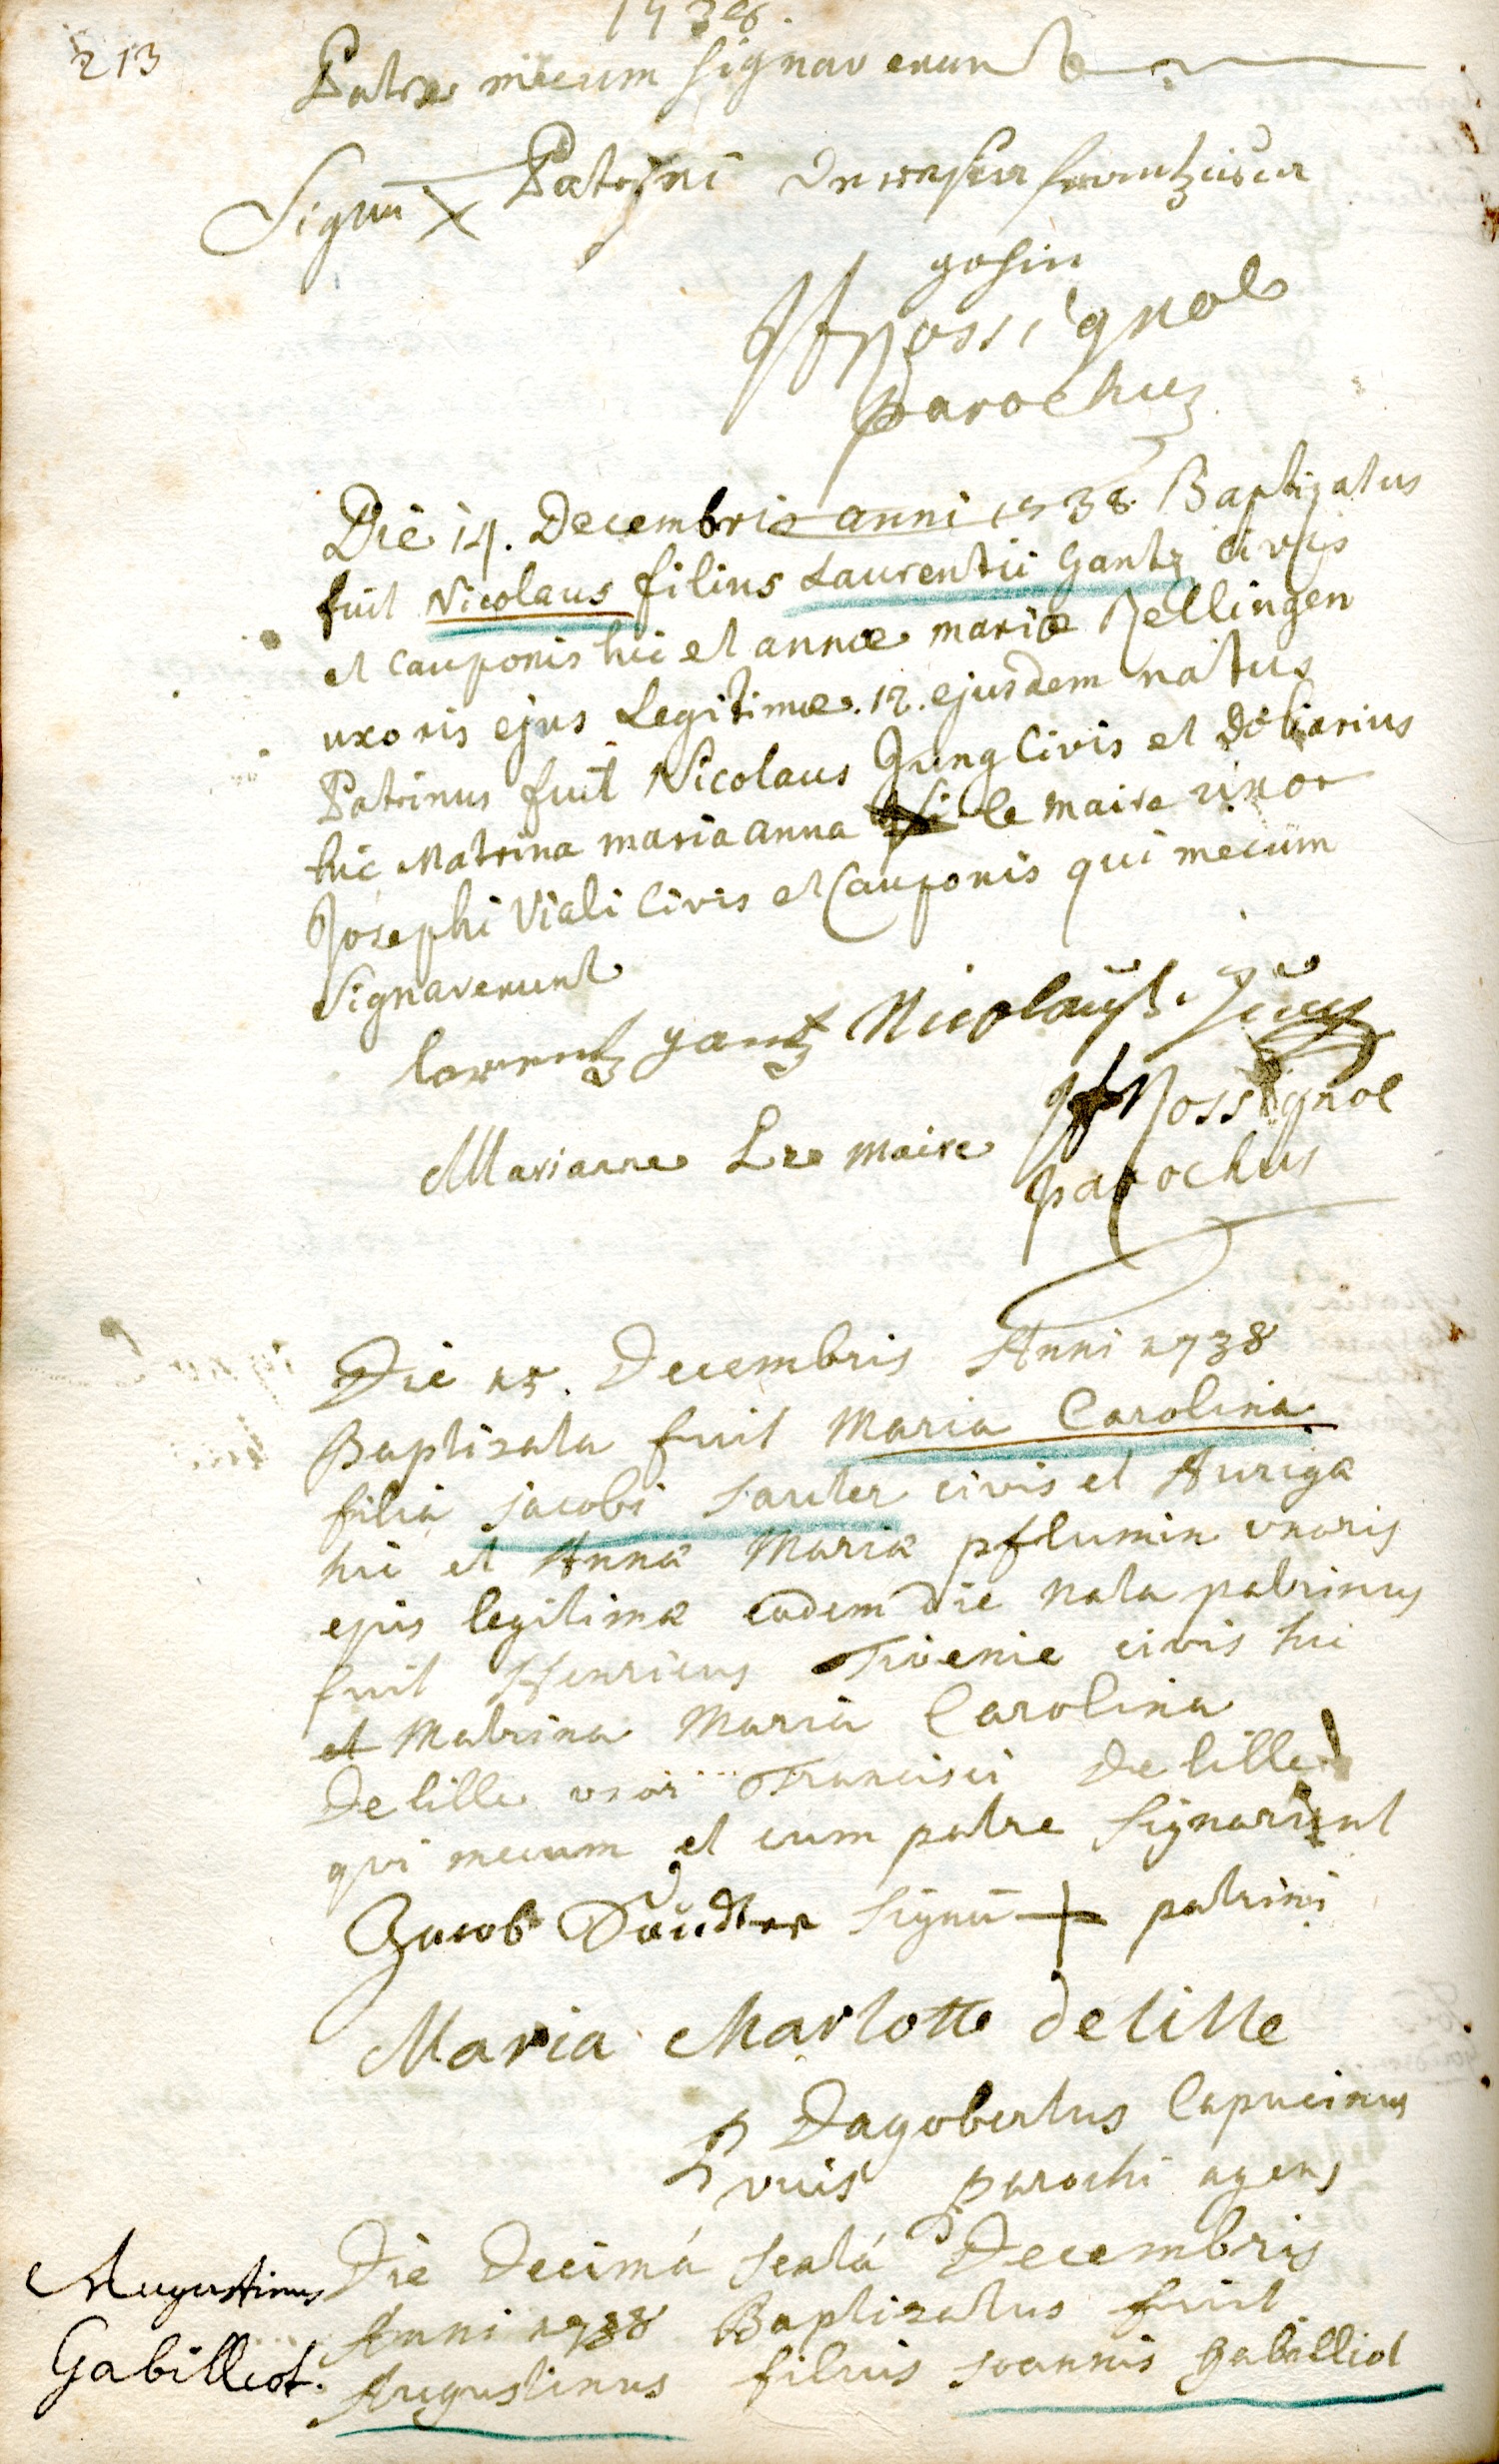 1738.
213
Patre mecum signaverunt
Signu X Patrini frantzisca
gosin
JFRossignol
parochus
Die 14. Decembris anni 1738. Baptizatus
fuit Nicolaus filius Laurentii Gantz civis
et cauponis hic et annæ mariæ Rellingen
uxoris ejus Legitimæ. 12. ejusdem natus
Patrinus fuit Nicolaus Jung Civis et doliarius
hic Matrina maria anna le maire uxor
Josephi Viali Civis et Cauponis qui mecum
signaverunt
lorentz gantz Nicolauß Jung
JFRossignol
Marianne Le maire
parochus
Die 15. Decembris Anni 1738
Baptizata fuit Maria Carolina
filia jacobi sauter civis et Aurigæ
hic et Annæ Mariæ pflumin uxoris
ejus legitimæ eadem die nata patrinus
fuit Henricus civis hic
et Matrina Maria Carolina
De lille uxor Francisci De lille
qui mecum et cum patre signarunt
Jacob Saudter Signū + patrini
Maria Charlotte delille
P Dagobertus Capucinus
vices parochi agens
Die Decimá sextá Decembris
Augustinus
Anni 1738 Baptizatus fuit
Gabilliot.
Augustinus filius joannis gabilliot